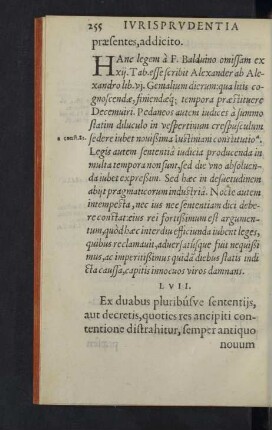 255 IVRISPRVDENTIA
præsentes, addicito.
HAnc legem à F. Balduino omissam ex
xij. Tab. esse scribit Alexander ab Ale-
xandro lib. vj. Genialium dierum: qua litis co-
gnoscendæ, finiendæq; tempora præstituere
Decemuiri. Pedaneos autem iudices à summo
statim diluculo in vespertinum crepusculum
sedere iubet nouissima Iustiniani constitutio a.
Legis autem sententiâ iudicia producenda in
multa tempora non sunt, sed die vno absoluen-
da iubet expressim. Sed hæc in desuetudinem
abijt pragmaticorum industriâ. Nocte autem
intempesta, nec ius nec sententiam dici debe-
re constat: eius rei fortissimum est argumen-
tum, quòd hæc interdiu efficiunda iubent leges,
quibus reclamauit, aduersatúsque fuit nequissi-
mus, ac imperitissimus quidã diebus statis indi-
cta caussa, capitis innocuos viros damnans.
LVII.
Ex duabus pluribúsve sententijs,
aut decretis, quoties res ancipiti con-
tentione distrahitur, semper antiquo
nouum